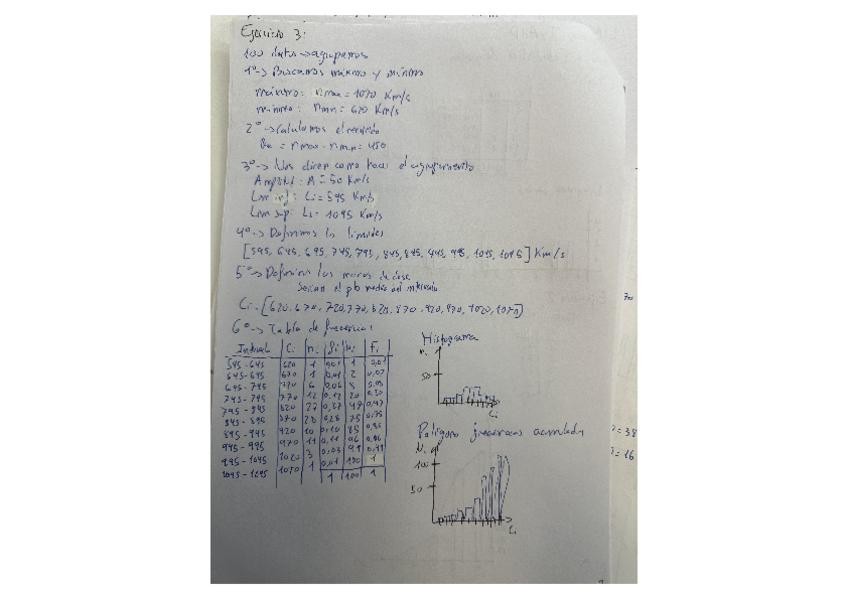 Ejercicio 3:
100 datos → agrupamos
1º → Buscamos máximo y mínimo
máximo: nmax = 1070 Km/s
mínimo: nmin = 620 Km/s
2º → calculamos el recorrido
Re = nmax - nmin = 450
3º → Nos dicen como hacer el agrupamiento
Amplitud: A = 50 Km/s
Lim inf: Li = 595 Km/s
Lim sup: Ls = 1095 Km/s
4º → Definimos los límites
[595, 645, 695, 745, 795, 845, 895, 945, 995, 1045, 1095] Km/s
5º → Definimos las marcas de clase
Serían el pto medio del intervalo
Ci = [620, 670, 720, 770, 820, 870, 920, 970, 1020, 1070]
6º → Tabla de frecuencias
Intervalo Ci ni fi Ni Fi
595 - 645 620 1 0,01 1 0,01
645 - 695 670 1 0,01 2 0,02
695 - 745 720 6 0,06 8 0,08
745 - 795 770 12 0,12 20 0,20
795 - 845 820 27 0,27 47 0,47
845 - 895 870 28 0,28 75 0,75
895 - 945 920 10 0,10 85 0,85
945 - 995 970 11 0,11 96 0,96
995 - 1045 1020 3 0,03 99 0,99
1070 1 0,01 100 1
1 100 1
Histograma
ni
50
Ci
Polígono frecuencias acumuladas
100
50